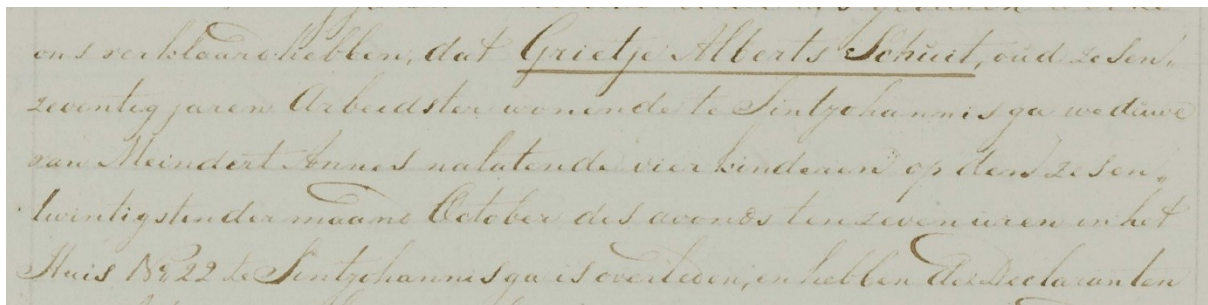 ons verklaard hebben, dat Grietje Alberts Schuit, oud zesen„
zeventig jaren Arbeidster wonende te Sintjohannisga weduwe
van Meindert Annes nalatende vier kinderen op den zesen„
twintigsten der maand October des avonds ten zeven uren in het
Huis No. 22 te Sintjohannisga is overleden, en hebben de Declaranten